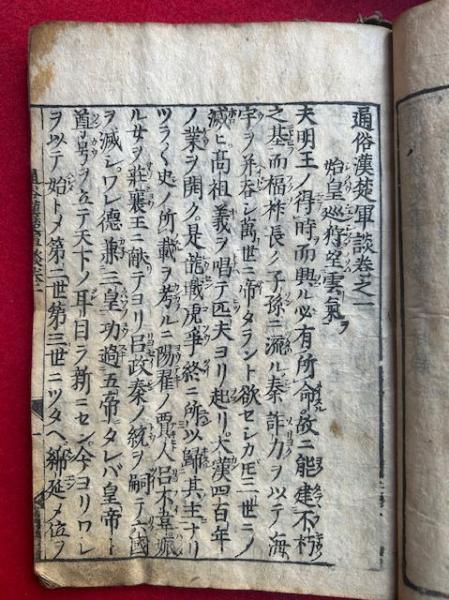 通俗漢楚軍談卷之一
始皇巡狩望雲氣
夫明王ノ得時而興ル必有所命故ニ能建不朽
之基而福祚長ノ子孫ニ流ル秦詐力ヲ以テ海
宇ヲ并吞シ萬世ニ帝タラント欲セシカ𪜈二世ニノ
滅ヒ高祖義ヲ唱テ匹夫ヨリ起リ大漢四百年
ノ業ヲ開ク是龍戰虎爭終ニ所以歸其主ナリ
ツラ〱史ノ所載ヲ考ルニ陽翟ノ賈人呂不韋
ル女ヲ莊襄王ニ献テヨリ呂政秦ノ統ヲ嗣テ六國
ヲ滅シワレ德兼三皇功過五帝タレバ皇帝ト
尊号ヲ立テ天下ノ耳目ヲ新ニセン今ヨリワレ
ヲ以テ始トメ第二世第三世ニツタヘ綿延メ位ヲ